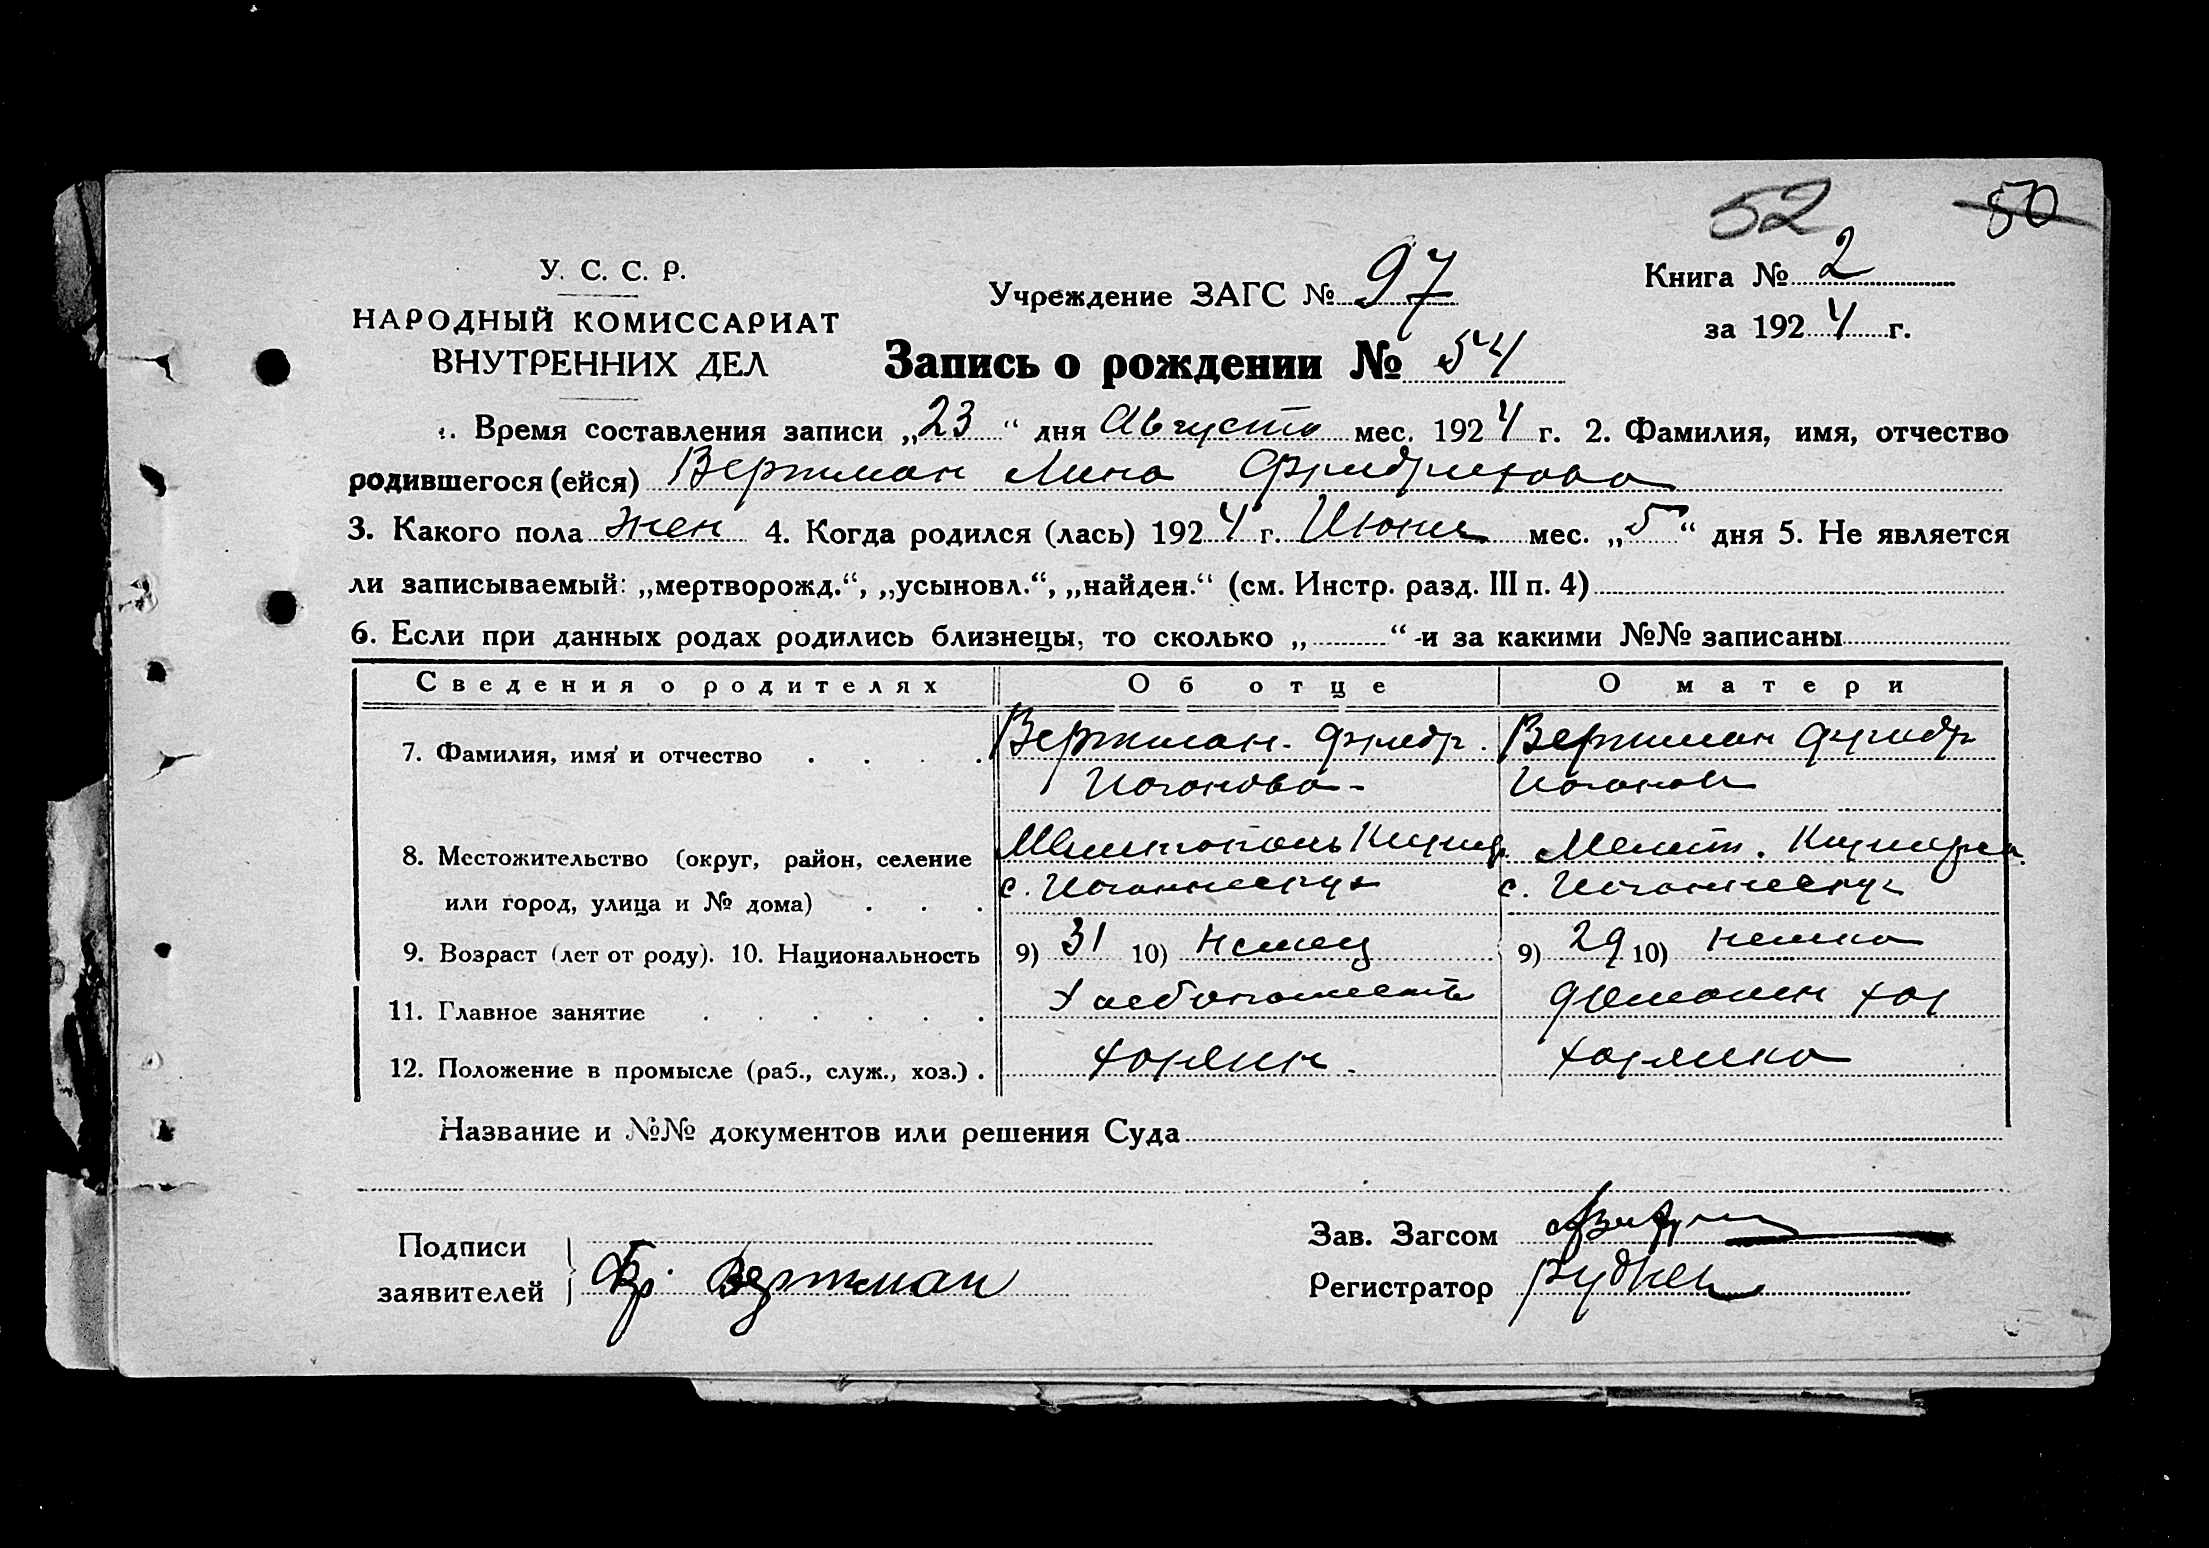 52 50
У. С. С. Р.
НАРОДНЫЙ КОМИССАРИАТ
ВНУТРЕННИХ ДЕЛ
Учреждение ЗАГС № 97
Книга № 2
за 1924 г.
Запись о рождении № 54
1. Время составления записи „23“ дня Августа мес. 1924 г. 2. Фамилия, имя, отчество
родившегося (ейся) Вертман Лина Фридрихова
3. Какого пола жен 4. Когда родился (лась) 1924 г. Июня мес. „5“ дня 5. Не является
ли записываемый: „мертворожд.“, „усыновл.“, „найден.“ (см. Инстр. разд. III п. 4)
6. Если при данных родах родились близнецы, то сколько „ “ и за какими №№ записаны
Сведения о родителях Об отце О матери
7. Фамилия, имя и отчество Вертман Фридр. Вертман Фридр
Иоганова
8. Местожительство (округ, район, селение Мелитополь Мелит.
или город, улица и № дома) с. Иоганнесру с. Иоганнесру
9. Возраст (лет от роду). 10. Национальность 9) 31 10) Немец 9) 29 10) немка
11. Главное занятие хлебопашест домашн хоз
12. Положение в промысле (раб., служ., хоз.) хозяин. хозяйка
Название и №№ документов или решения Суда
Подписи
заявителей Фр. Вертман
Зав. Загсом
Регистратор